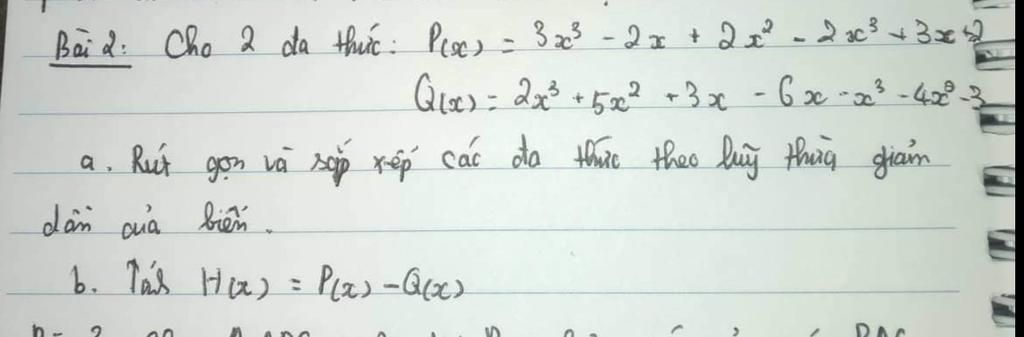 Bài 2: Cho 2 đa thức: P(x) = 3x³ - 2x + 2x² - 2x³ + 3x + 2
Q(x) = 2x³ + 5x² + 3x - 6x - x³ - 4x² - 3
a. Rút gọn và sắp xếp các đa thức theo luỹ thừa giảm
dần của biến.
b. Tính H(x) = P(x) - Q(x)